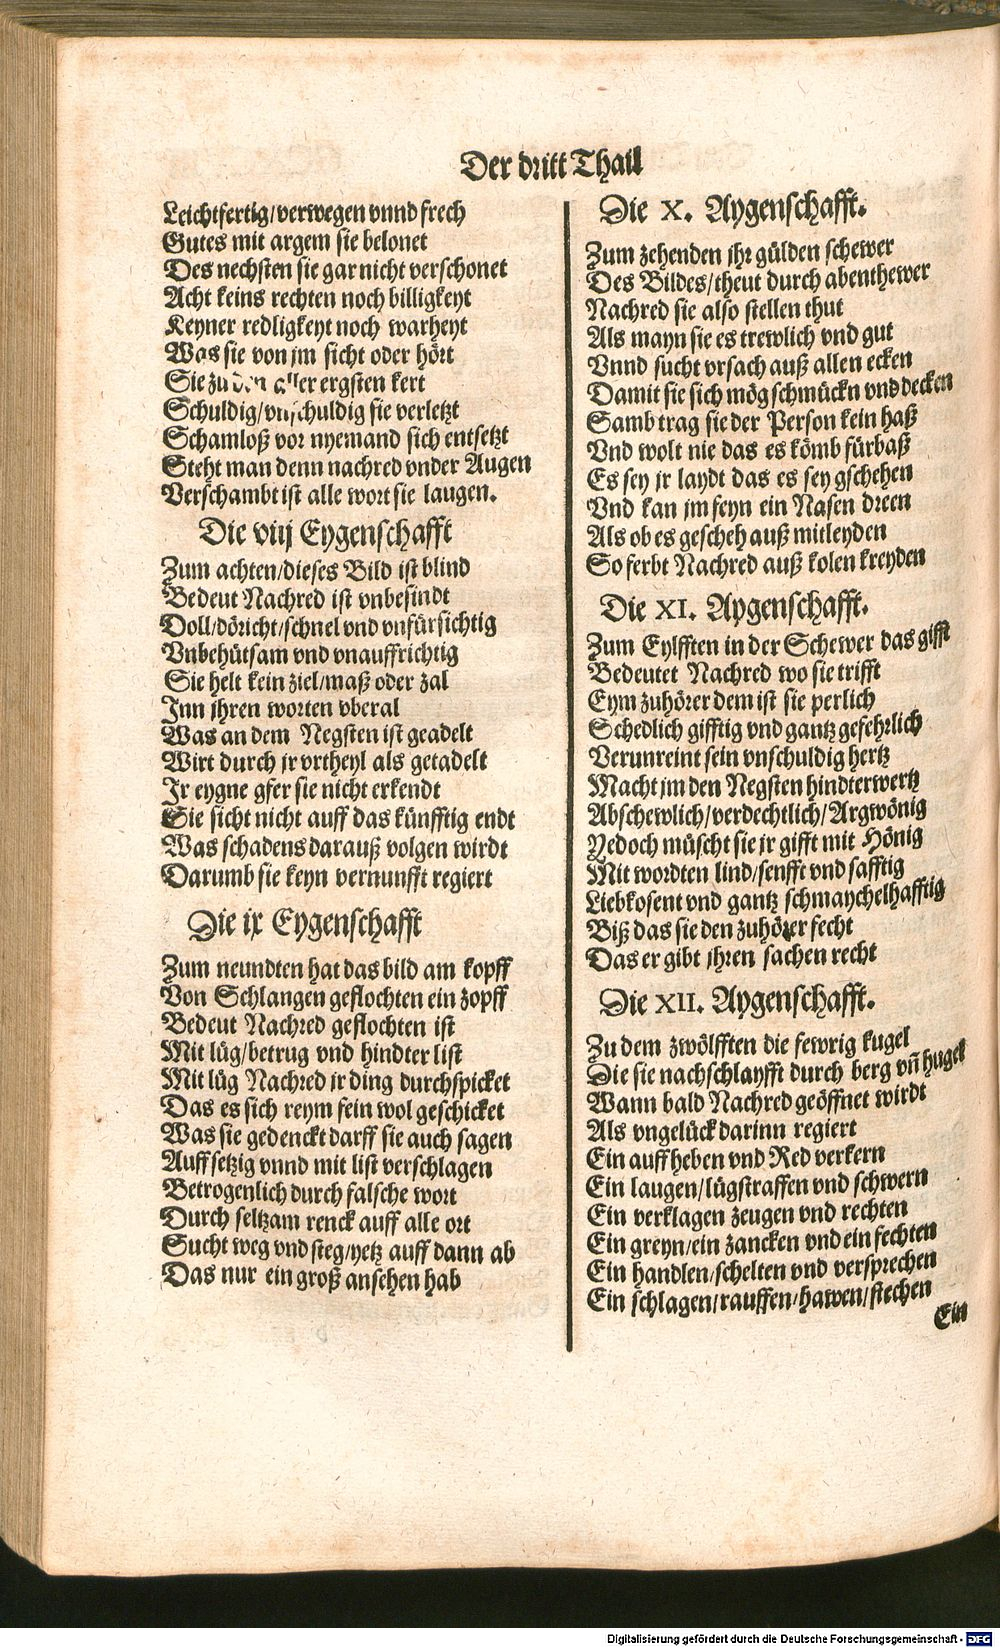 Der dritt Thail
Leichtfertig/verwegen vnnd frech
Gutes mit argem sie belonet
Des nechsten sie gar nicht verschonet
Acht keins rechten noch billigkeyt
Keyner redligkeyt noch warheyt
Was sie von jm sicht oder hört
Sie zu den aller ergsten kert
Schuldig/vnschuldig sie verletzt
Schamloß vor nyemand sich entsetzt
Steht man denn nachred vnder Augen
Verschambt ist alle wort sie laugen.
Die viij Eygenschafft
Zum achten/dieses Bild ist blind
Bedeut Nachred ist vnbesindt
Doll/döricht/schnel vnd vnfürsichtig
Vnbehütsam vnd vnauffrichtig
Sie helt kein ziel/maß oder zal
Inn jhren worten vberal
Was an dem Negsten ist geadelt
Wirt durch jr vrtheyl als getadelt
Ir eygne gfer sie nicht erkendt
Sie sicht nicht auff das künfftig endt
Was schadens darauß volgen wirdt
Darumb sie keyn vernunfft regiert
Die ix Eygenschafft
Zum neundten hat das bild am kopff
Von Schlangen geflochten ein zopff
Bedeut Nachred geflochten ist
Mit lüg/betrug vnd hindter list
Mit lüg Nachred jr ding durchspicket
Das es sich reym fein wol geschicket
Was sie gedenckt darff sie auch sagen
Auffsetzig vnnd mit list verschlagen
Betrogenlich durch falsche wort
Durch seltzam renck auff alle ort
Sucht weg vnd steg/yetz auff dann ab
Das nur ein groß ansehen hab
Die X. Aygenschafft.
Zum zehenden jhr gülden schewer
Des Bildes/theut durch abenthewer
Nachred sie also stellen thut
Als mayn sie es trewlich vnd gut
Vnnd sucht vrsach auß allen ecken
Damit sie sich mög schmückn vnd decken
Samb trag sie der Person kein haß
Vnd wolt nie das es kömb fürbaß
Es sey jr laydt das es sey gschehen
Vnd kan jm feyn ein Nasen dreen
Als ob es gescheh auß mitleyden
So ferbt Nachred auß kolen kreyden
Die XI. Aygenschafft.
Zum Eylfften in der Schewer das gifft
Bedeutet Nachred wo sie trifft
Eym zuhörer dem ist sie perlich
Schedlich gifftig vnd gantz gefehrlich
Verunreint sein vnschuldig hertz
Macht jm den Negsten hindterwertz
Abschewlich/verdechtlich/Argwönig
Yedoch müscht sie jr gifft mit Hönig
Mit wordten lind/senfft vnd safftig
Liebkosent vnd gantz schmaychelhafftig
Biß das sie den zuhörer fecht
Das er gibt jhren sachen recht
Die XII. Aygenschafft.
Zu dem zwölfften die fewrig kugel
Die sie nachschlayfft durch berg vn̄ hugel
Wann bald Nachred geöffnet wirdt
Als vngelück darinn regiert
Ein auffheben vnd Red verkern
Ein laugen/lügstraffen vnd schwern
Ein verklagen zeugen vnd rechten
Ein greyn/ein zancken vnd ein fechten
Ein handlen/schelten vnd versprechen
Ein schlagen/rauffen/hawen/stechen
Ein
Digitalisierung gefördert durch die Deutsche Forschungsgemeinschaft - DFG